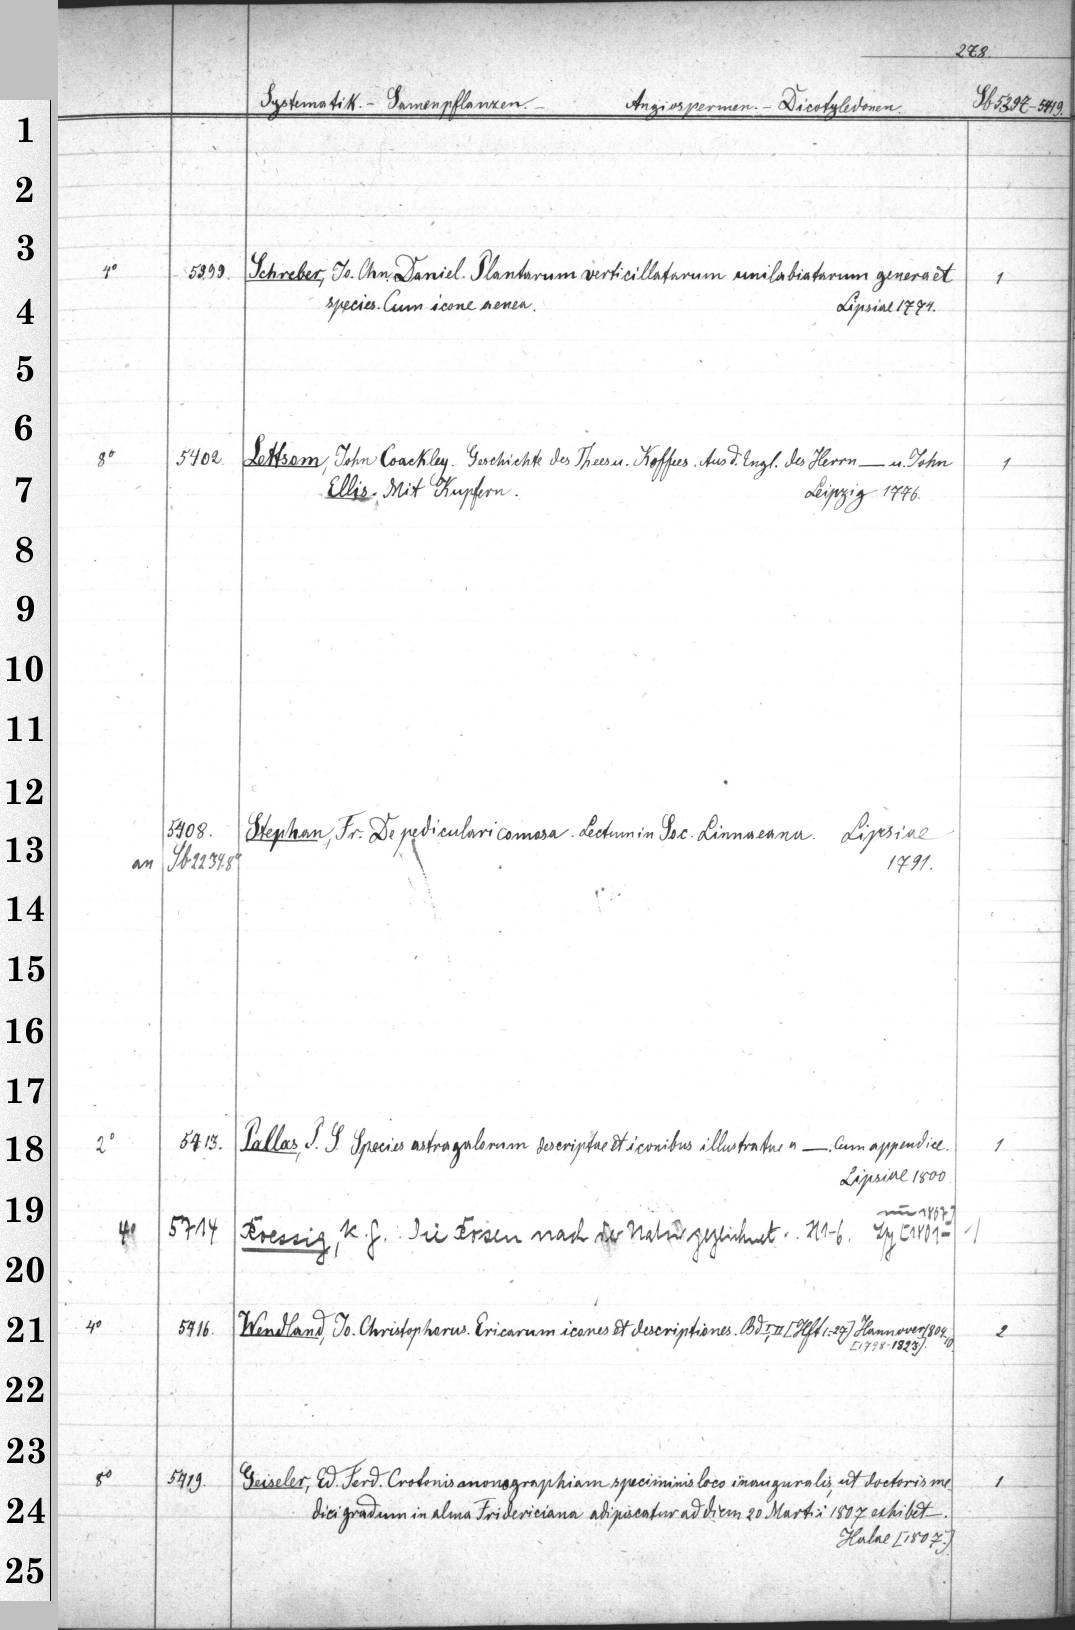 278.
Systematik. - Samenpflanzen. - Angiospermen. - Dicotyledonen. Sb 5397-5419.
1
2
3
4° 5399. Schreber, Jo. Chn. Daniel. Plantarum verticillatarum unilabiatarum genera et 1
4 species. Cum icone aenea. Lipsiae 1774.
5
6
8° 5402. Lettsom, John Coackley. Geschichte des Thees u. Koffees. Aus d. Engl. des Herrn — u. John 1
7 Ellis. Mit Kupfern. Leipzig 1776.
8
9
10
11
12
5408. Stephan, Fr. De pediculari comosa. Lectum in Soc. Linnaeana. Lipsiae
13 an Sb 2234 8° 1791.
14
15
16
17
18 2° 5413. Pallas, P. S. Species astragalorum descriptae et iconibus illustratae a —. Cum appendice. 1
Lipsiae 1800
19 1807]
4° 5714 Roessig, K. G. Die Rosen nach der Natur gezeichnet. H 1-6. Lpg [1801- 1
20
21 4° 5416. Wendland, Jo. Christophorus. Ericarum icones et descriptiones. Bd I, II [Hft 1-27] Hannover 1804 2
[1798-1823]. 10
22
23
8° 5419. Geiseler, Ed. Ferd. Crotonis monographiam speciminis loco inauguralis, ut doctoris me 1
24 dici gradum in alma Fridericiana adipiscatur ad diem 20 Martii 1807 exhibet —.
Halae [1807.]
25